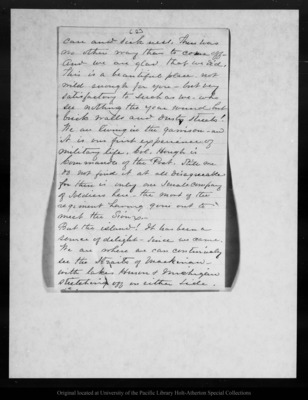 (2)
care and sick nest. There was
no other way than to come off
And we are glad that we did.
This is a beautiful place not
wild enough for you - but very
satisfactory to such as we who
see nothing the year around but
brick walls and dusty streets!
We are living in the garrison - and
it is our first experience of
military life. Col. Hough is
Commander of the Post. Still we
do not find it at all disagreeable
for there is only one small company
of soldiers here - the most of the
regiment having gone out to
meet the Sioux -
But this island! It has been a
source of delight - since we came.
We are where we can continually
see the Straits of Mackinac -
with lakes Huron & Michigan
stretching off on either side.
Original located at University of the Pacific Library Holt-Atherton Special Collections